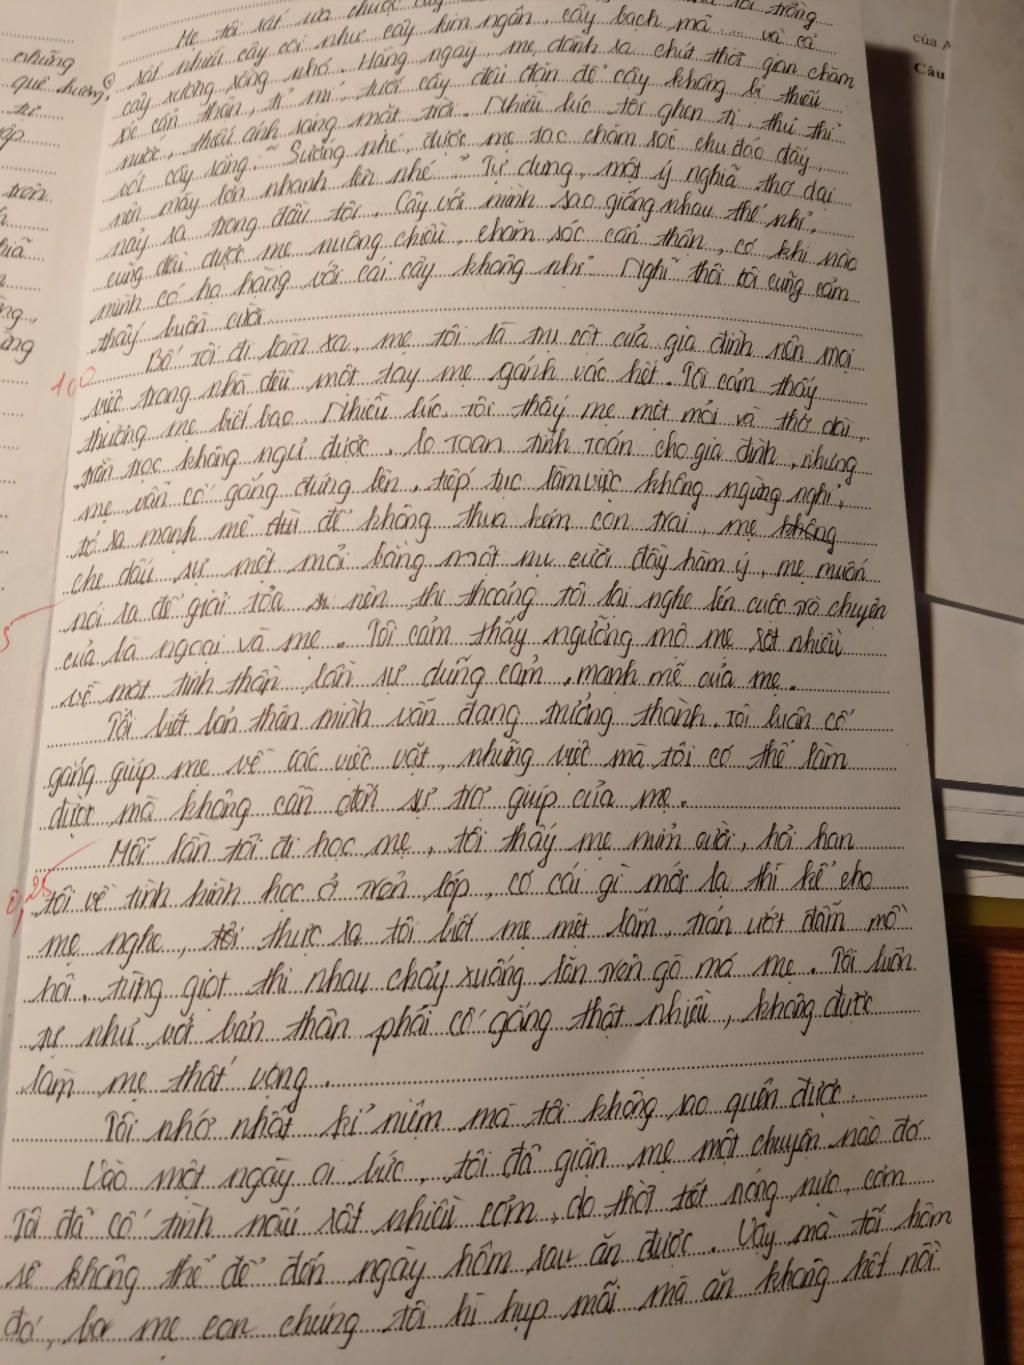 Mẹ tôi rất ưa chuộc cây
rất nhiều cây cối như cây kim ngân, cây bạch mã... và cả
cây xương sông nhỏ. Hàng ngày, mẹ dành ra chút thời gian chăm
sóc cẩn thận, tỉ mỉ, tưới cây đều đặn để cây không bị thiếu
nước, thiếu ánh sáng mặt trời. Nhiều lúc tôi ghen tị, thủ thỉ
với cây rằng: "Sướng nhé, được mẹ tao chăm sóc chu đáo đấy,
nên mấy lớn nhanh lên nhé". Tự dưng, một ý nghĩ thơ dại
nảy ra trong đầu tôi. Cây với mình sao giống nhau thế nhỉ,
cũng đều được mẹ nuông chiều, chăm sóc cẩn thận, có khi nào
mình có họ hàng với cái cây không nhỉ. Nghĩ thôi tôi cũng cảm
thấy buồn cười.
Bố tôi đi làm xa, mẹ tôi là trụ cột của gia đình nên mọi
việc trong nhà đều một tay mẹ gánh vác hết. Tôi cảm thấy
thương mẹ biết bao. Nhiều lúc, tôi thấy mẹ mệt mỏi và thở dài,
trằn trọc không ngủ được, lo toan tính toán cho gia đình, nhưng
mẹ vẫn cố gắng đứng lên, tiếp tục làm việc không ngừng nghỉ,
tỏ ra mạnh mẽ đủ để không thua kém con trai, mẹ không
che dấu sự mệt mỏi bằng một nụ cười đầy hàm ý, mẹ muốn
nói ra để giải tỏa nên thi thoảng tôi lại nghe lén cuộc trò chuyện
của bà ngoại và mẹ. Tôi cảm thấy ngưỡng mộ mẹ rất nhiều
về mặt tinh thần lẫn sự dũng cảm, mạnh mẽ của mẹ.
Tôi biết bản thân mình vẫn đang trưởng thành. Tôi luôn cố
gắng giúp mẹ về các việc vặt, những việc mà tôi có thể làm
được mà không cần đến sự trợ giúp của mẹ.
Mỗi lần tôi đi học mẹ, tôi thấy mẹ mỉm cười, hỏi han
tôi về tình hình học ở trên lớp, có cái gì mới lạ thì kể cho
mẹ nghe, tôi thực ra tôi biết mẹ mệt lắm, trán ướt đẫm mồ
hôi, từng giọt thi nhau chảy xuống lăn trên gò má mẹ. Tôi luôn
tự nhủ với bản thân phải cố gắng thật nhiều, không được
làm mẹ thất vọng.
Tôi nhớ nhất kỉ niệm mà tôi không sao quên được.
Vào một ngày oi bức, tôi đã giận mẹ một chuyện nào đó
Tôi đã cố tình nấu rất nhiều cơm, do thời tiết nóng nực, cơm
sẽ không thể để đến ngày hôm sau ăn được. Vậy mà tối hôm
đó, ba mẹ con chúng tôi hì hụp mãi mà ăn không hết nồi
những
quê hương
trên
của
Câu
100
0,25